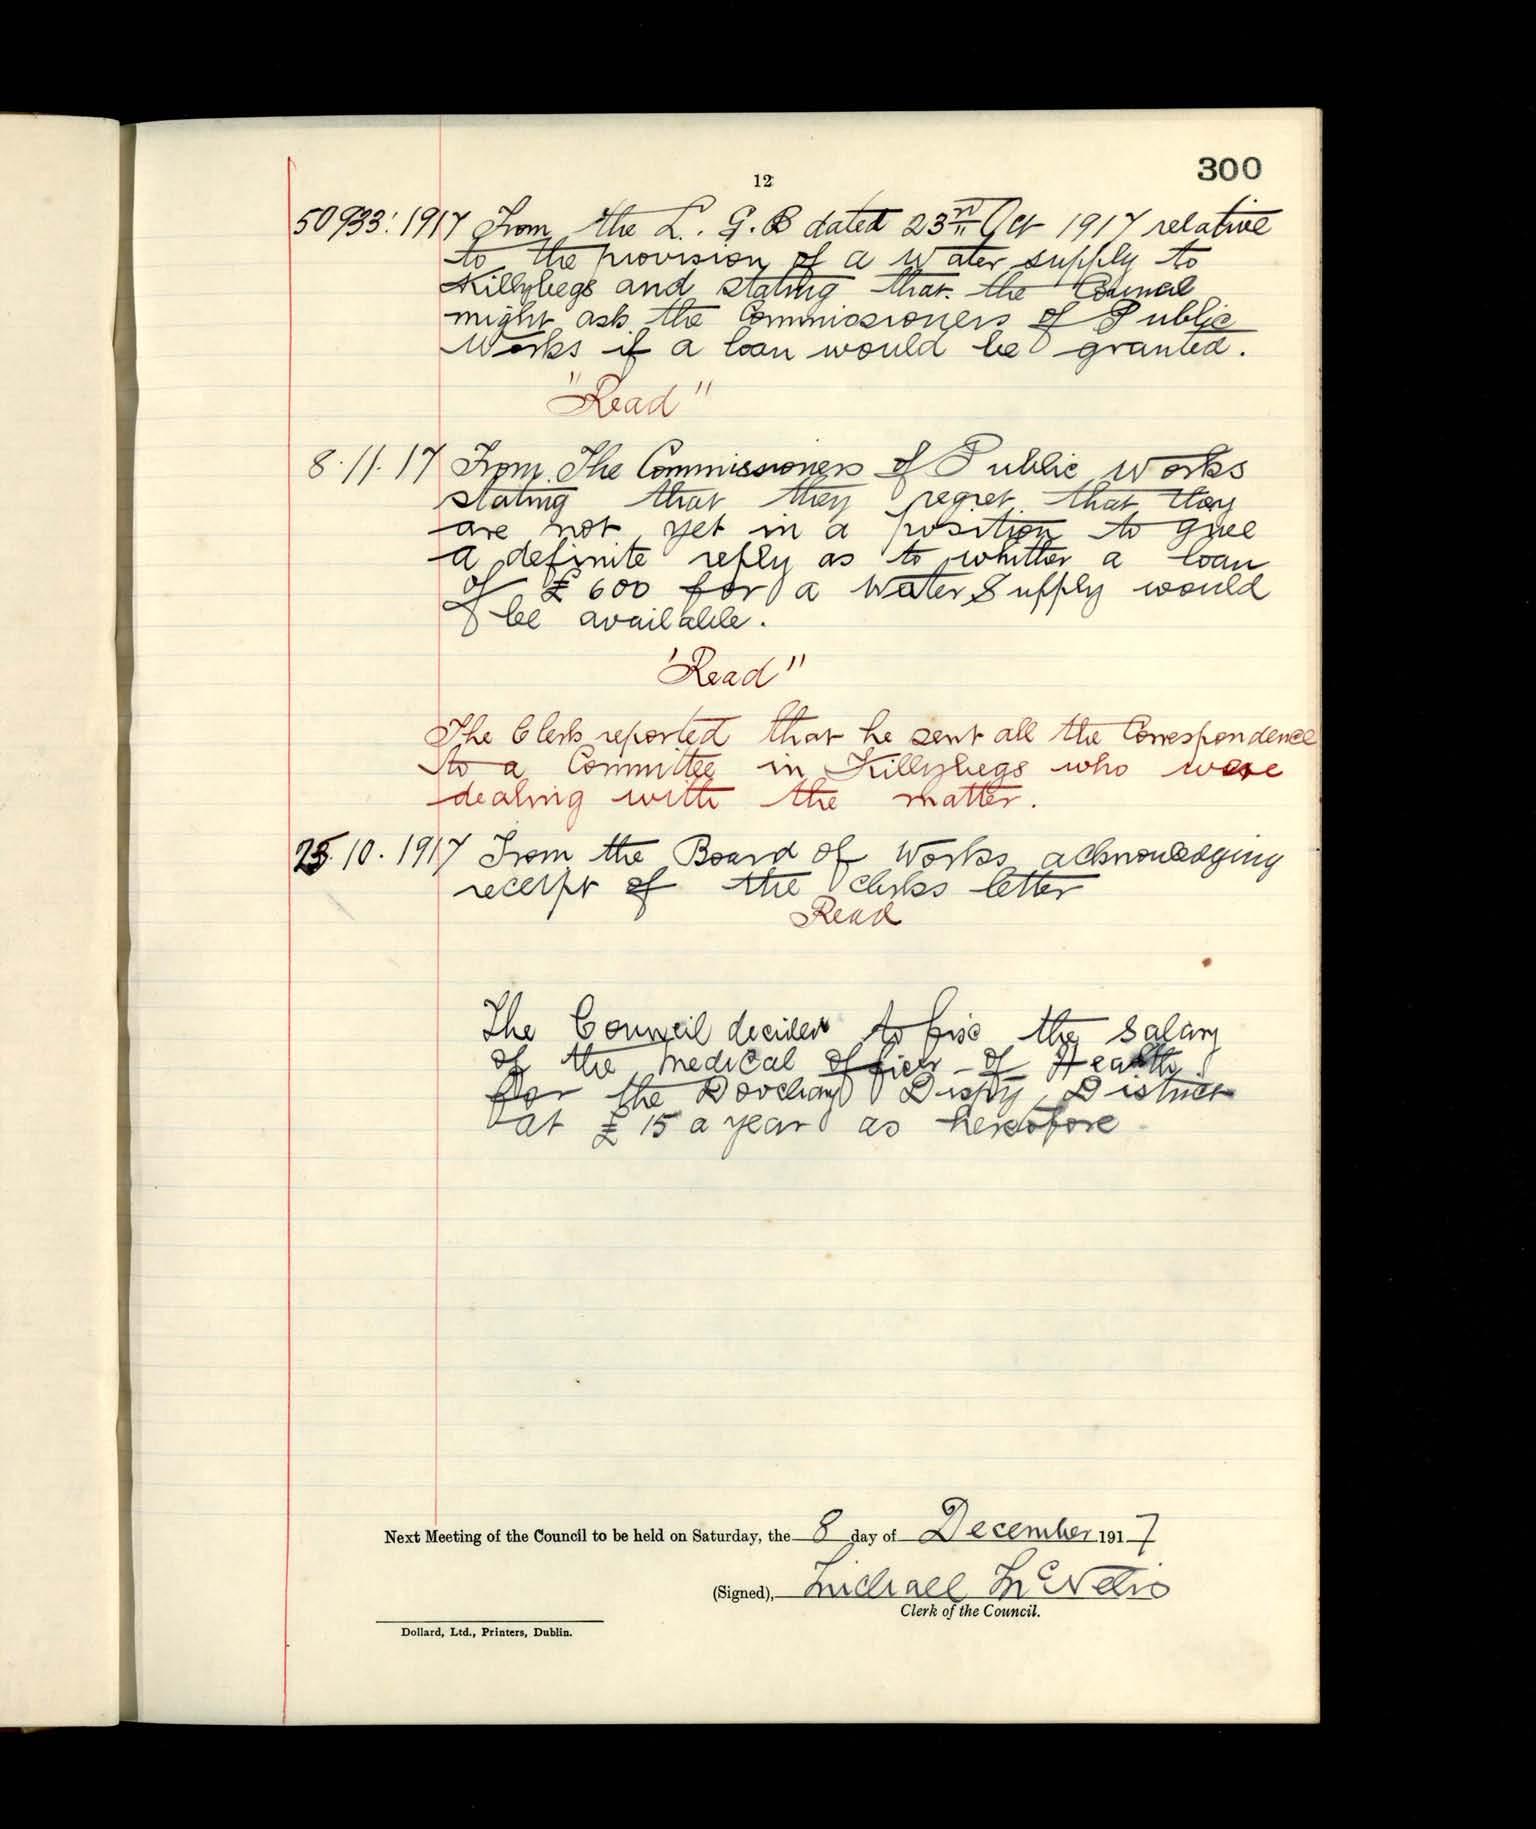 300
12
50933: 1917 From the L. G. B dated 23rd Oct 1917 relative
to the provision of a Water supply to
Killybegs and stating that the Council
might ask the Commissioners of Public
Works if a loan would be granted.
"Read"
8.11.17 From The Commissioners of Public Works
stating that they regret that they
are not yet in a position to give
a definite reply as to whither a loan
of £600 for a Water Supply would
be available.
'Read"
The Clerk reported that he sent all the Correspondence
to a Committee in Killybegs who were
dealing with the matter.
25.10.1917 From the Board of Works acknowledging
receipt of the clerks letter
Read
The Council decided to fix the salary
of the Medical officer of Health
for the Doochary Dispy District
at £15 a year as heretofore
Next Meeting of the Council to be held on Saturday, the 8 day of December 1917
(Signed), Michael McNelis
Clerk of the Council.
Dollard, Ltd., Printers, Dublin.